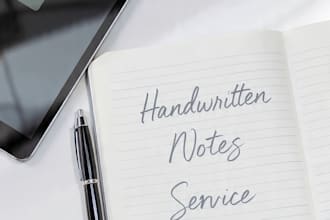 Handwritten
Notes
Service